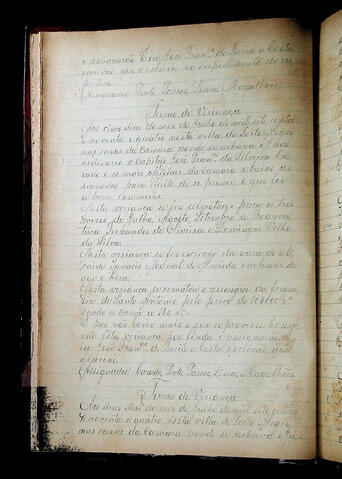 e assignarão. Eu José Fran.co de Faria e Costa
escrivão que o escrevi no impedimento do ins
petivo.
(Assignados) Pinto, Passos, Lima, Magalhães
Termo de Veriança
Aos cinco dias do mez de Julho de mil sete centos
e noventa e quatro nesta villa de Porto Alegre
nas cazas da Camara donde se achava o Juiz
ordinario o Capitão José Fran.co da Silveira Ca
zado e os mais officiaes da camara abaixo as
signados para effeito de se prover o que for
a bem commum.
Nesta veriança se fez almotaçeis para os tres
mezes de Julho, Agosto, Setembro a Boaven
tura Fernandes de Oliveira e Domingos Velho
da Silva.
Nesta veriança se fez escrivão da vara de Al
caide Ignacio Manoel de Almeida em lugar do
que o hera.
Nesta veriança se rematou o assougue da fregue
zia de Santo Antonio pelo preço de
sendo a carne a 160 r.s
E por não haver mais o que se provêsse houve
rão esta veriança por finda e assignarão.
eu José Fran.co de Faria e Costa escrivão que
o escrevi.
(Assignados) Cazado, Pinto, Passos, Lima, Magalhães
Termo de Veriança
Aos dias do mez de Julho de mil sete centos
e noventa e quatro nesta villa de Porto Alegre
nas cazas da Camara aonde se achava o Juiz